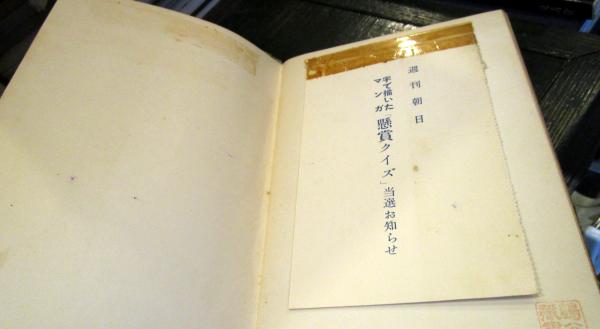 週刊朝日
字で描いたマンガ「懸賞クイズ」当選お知らせ